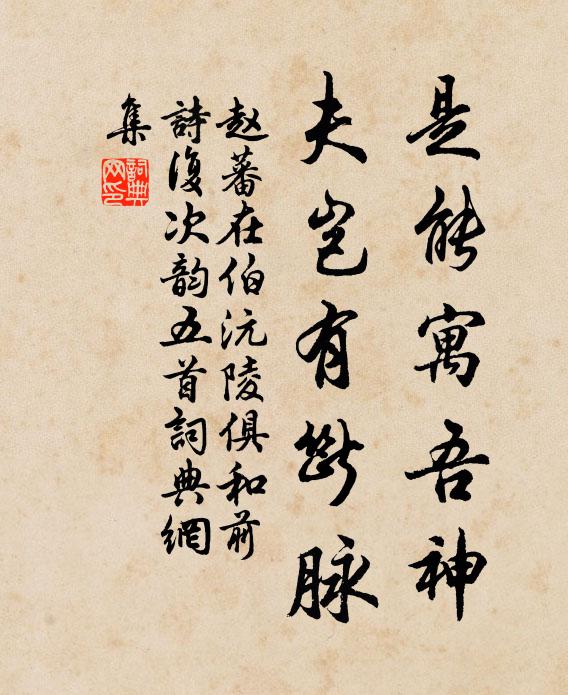 是能寓吾神
夫岂有斷脉
赵蕃在伯沅陵俱和前
詩復次韵五首詞典網
集
詞典網印